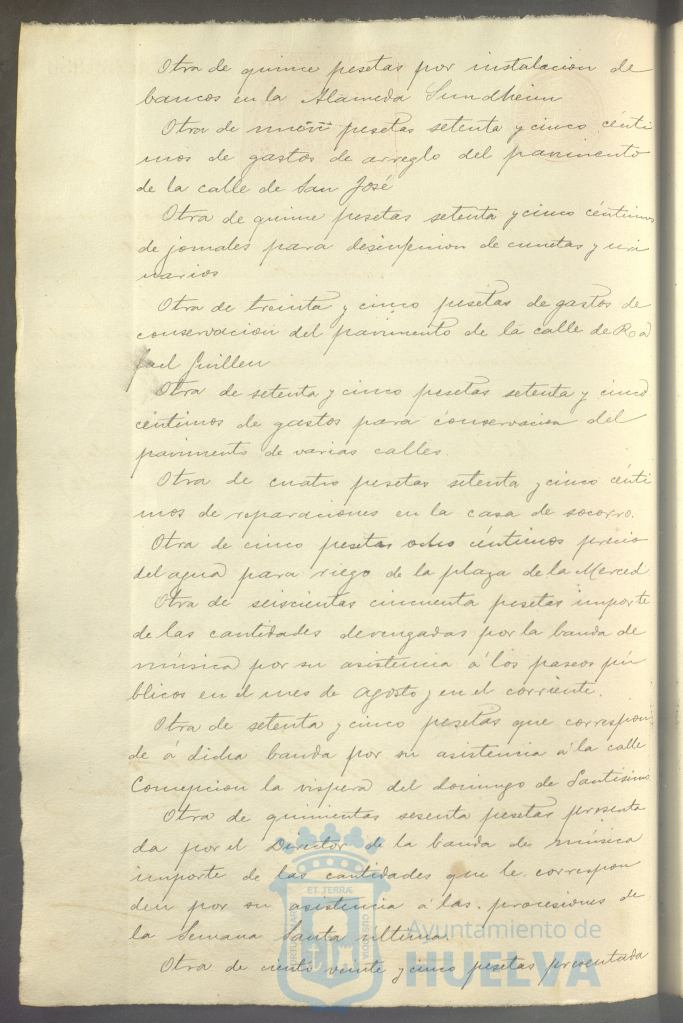 Otra de quince pesetas por instalacion de
bancos en la Alameda Sundheim
Otra de nueve pesetas setenta y cinco cénti
mos de gastos de arreglo del pavimento
de la calle de San José
Otra de quince pesetas setenta y cinco céntimos
de jornales para desinfeccion de cunetas y uri
narios
Otra de treinta y cinco pesetas de gastos de
conservación del pavimento de la calle de Ra
fael Guillen
Otra de setenta y cinco pesetas setenta y cinco
céntimos de gastos para conservacion del
pavimento de varias calles.
Otra de cuatro pesetas setenta y cinco cénti
mos de reparaciones en la casa de socorro.
Otra de cinco pesetas ocho céntimos precio
del agua para riego de la plaza de la Merced
Otra de seiscientas cincuenta pesetas importe
de las cantidades devengadas por la banda de
música por su asistencia á los paseos pú
blicos en el mes de Agosto y en el corriente.
Otra de setenta y cinco pesetas que correspon
de á dicha banda por su asistencia á la calle
Concepcion la vispera del domingo de Santisimo
Otra de quinientas sesenta pesetas presenta
da por el Director de la banda de música
importe de las cantidades que le correspon
den por su asistencia á las procesiones de
la Semana Santa ultima.
Otra de ciento veinte y cinco pesetas presentada
Ayuntamiento de
HUELVA